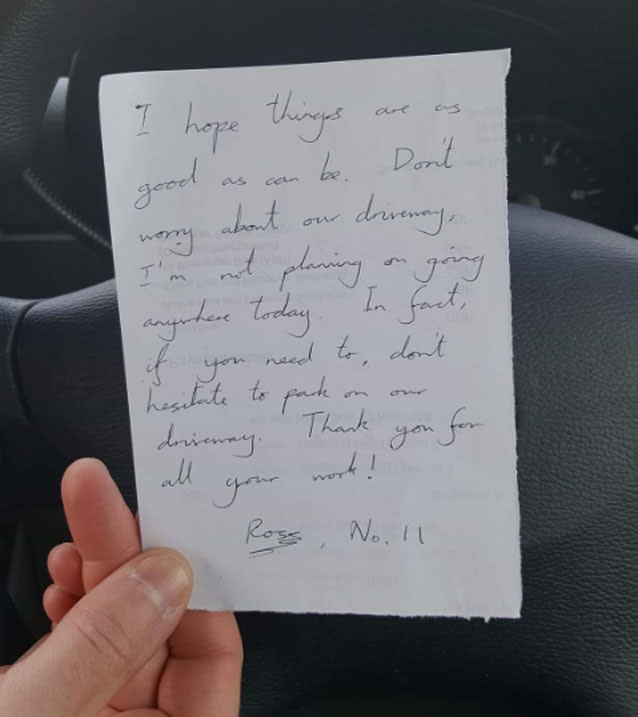 I hope things are as
good as can be. Don't
worry about our driveway,
I'm not planning on going
anywhere today. In fact,
if you need to, don't
hesitate to park on our
driveway. Thank you for
all your work!
Ross, No. 11